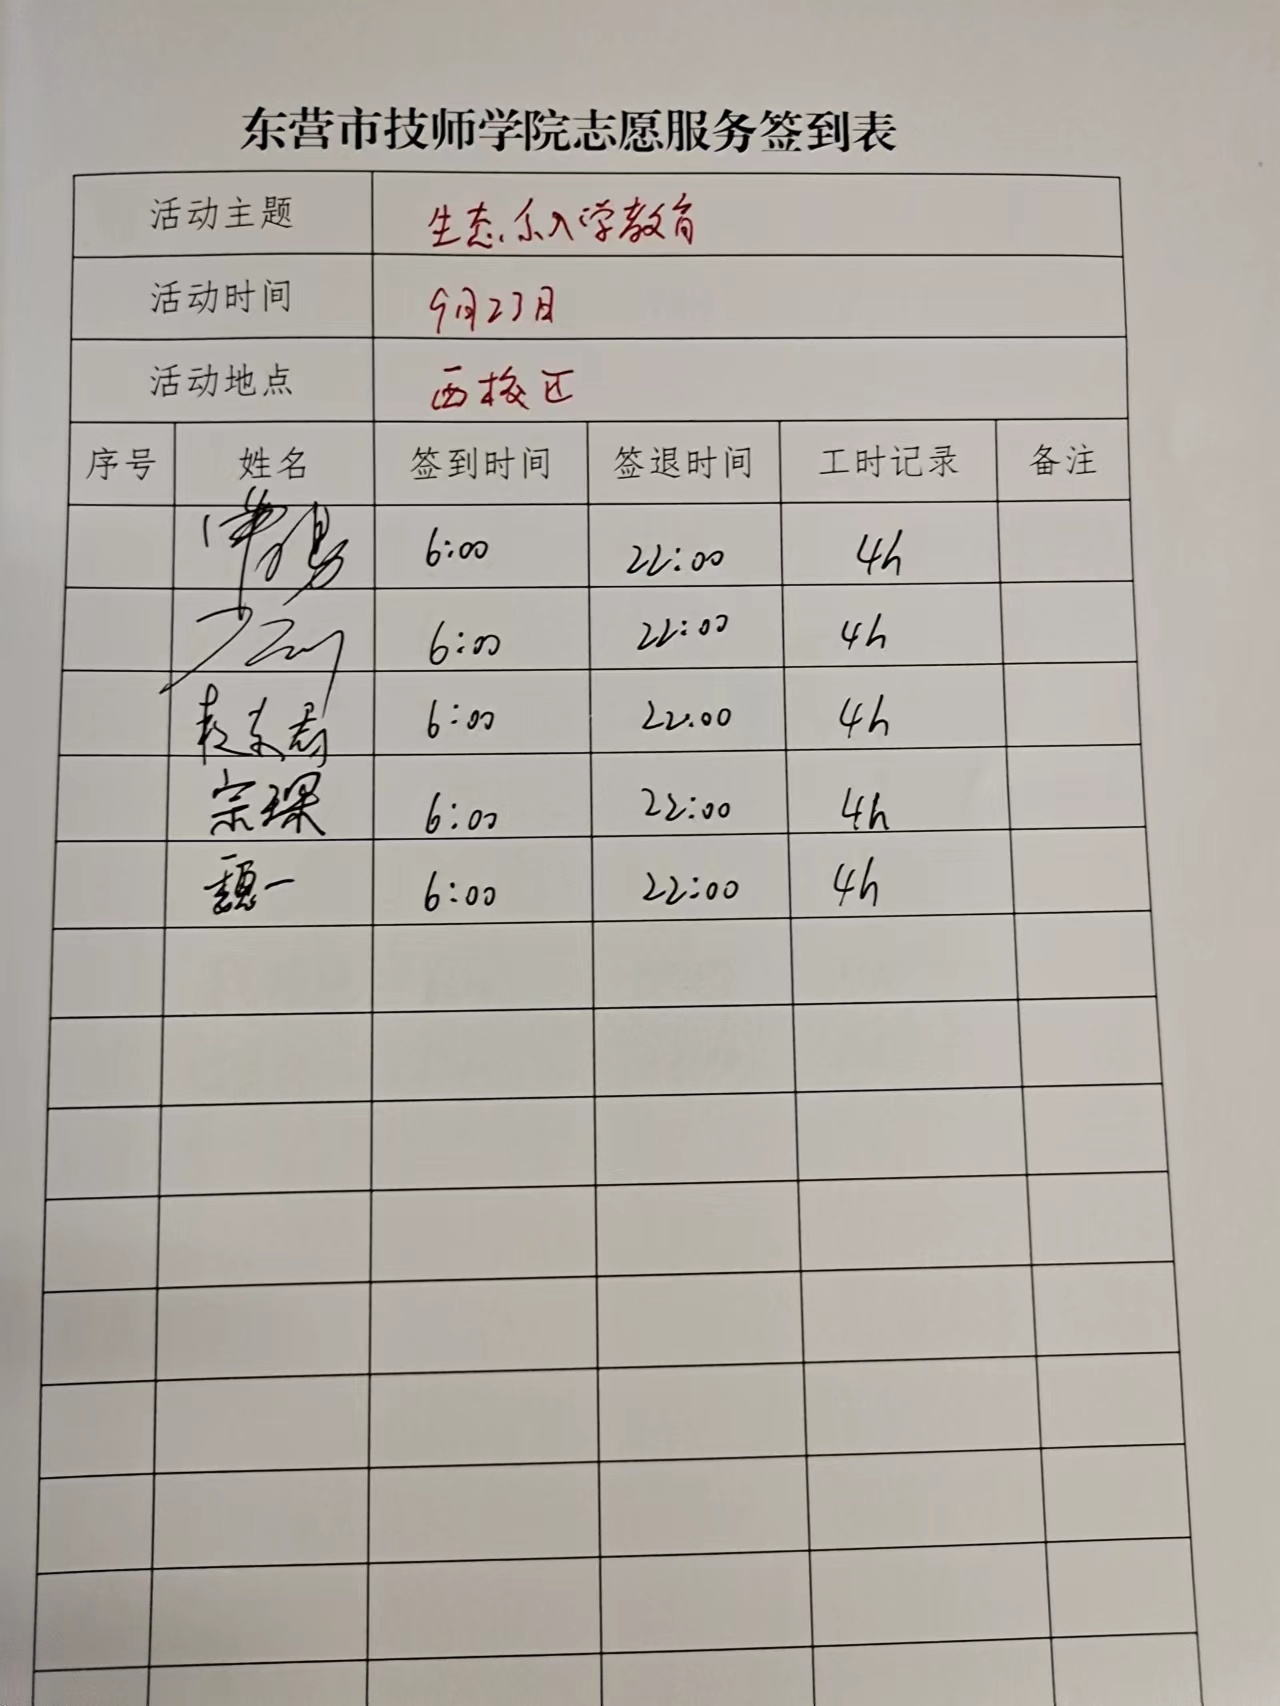 东营市技师学院志愿服务签到表
活动主题 生态系入学教育
活动时间 9月23日
活动地点 西校区
序号 姓名 签到时间 签退时间 工时记录 备注
6:00 22:00 4h
6:00 22:00 4h
6:00 22:00 4h
宗琛 6:00 22:00 4h
6:00 22:00 4h